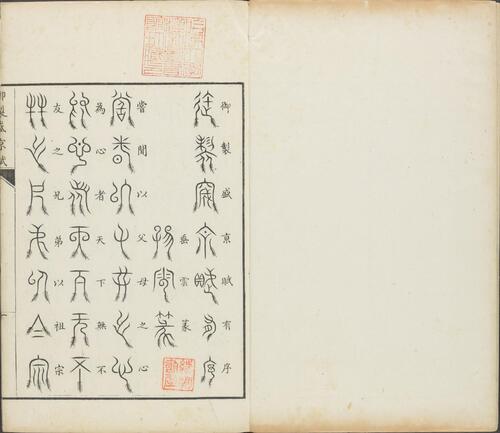 御製盛京賦有序
垂雲篆
嘗聞以父母之心
為心者天下無不
友之兄弟以祖宗
御製盛京賦